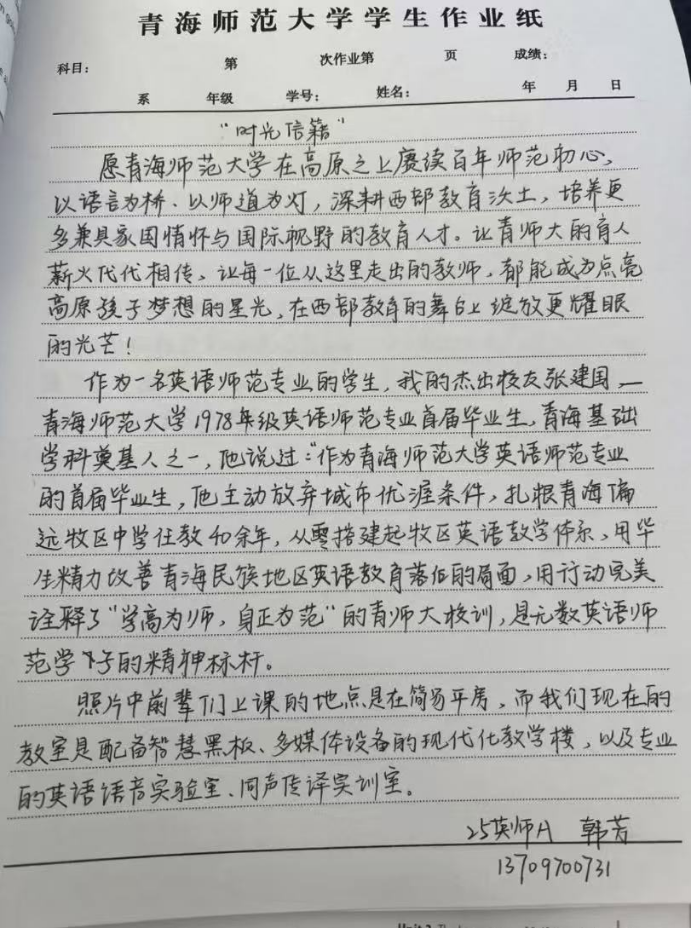 青海师范大学学生作业纸
科目： 第 次作业第 页 成绩：
系 年级 学号： 姓名： 年 月 日
“时光信籍”
愿青海师范大学在高原之上赓续百年师范初心，
以语言为桥、以师道为灯，深耕西部教育沃土，培养更
多兼具家国情怀与国际视野的教育人才。让青师大的育人
薪火代代相传，让每一位从这里走出的教师，都能成为点亮
高原孩子梦想的星光，在西部教育的舞台上绽放更耀眼
的光芒！
作为一名英语师范专业的学生，我的杰出校友张建国，—
青海师范大学1978年级英语师范专业首届毕业生，青海基础
学科奠基人之一，他说过：“作为青海师范大学英语师范专业
的首届毕业生，他主动放弃城市优渥条件，扎根青海偏
远牧区中学任教40余年，从零搭建起牧区英语教学体系，用毕
生精力改善青海民族地区英语教育落后的局面，用行动完美
诠释了“学高为师，身正为范”的青师大校训，是无数英语师
范学子的精神标杆。
照片中前辈们上课的地点是在简易平房，而我们现在的
教室是配备智慧黑板、多媒体设备的现代化教学楼，以及专业
的英语语音实验室、同声传译实训室。
25英师A 韩芳
13709700731